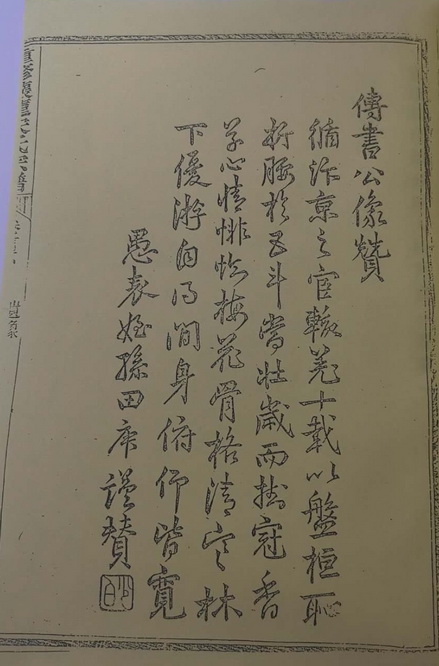 傳書公像贊
循汴京之官轍羌十載以盤桓恥
折腰於五斗當壯歲而掛冠香
草心情悱惻梅花骨格清寒林
下優游自得閒身俯仰皆寬
愚表姪孫田謹贊